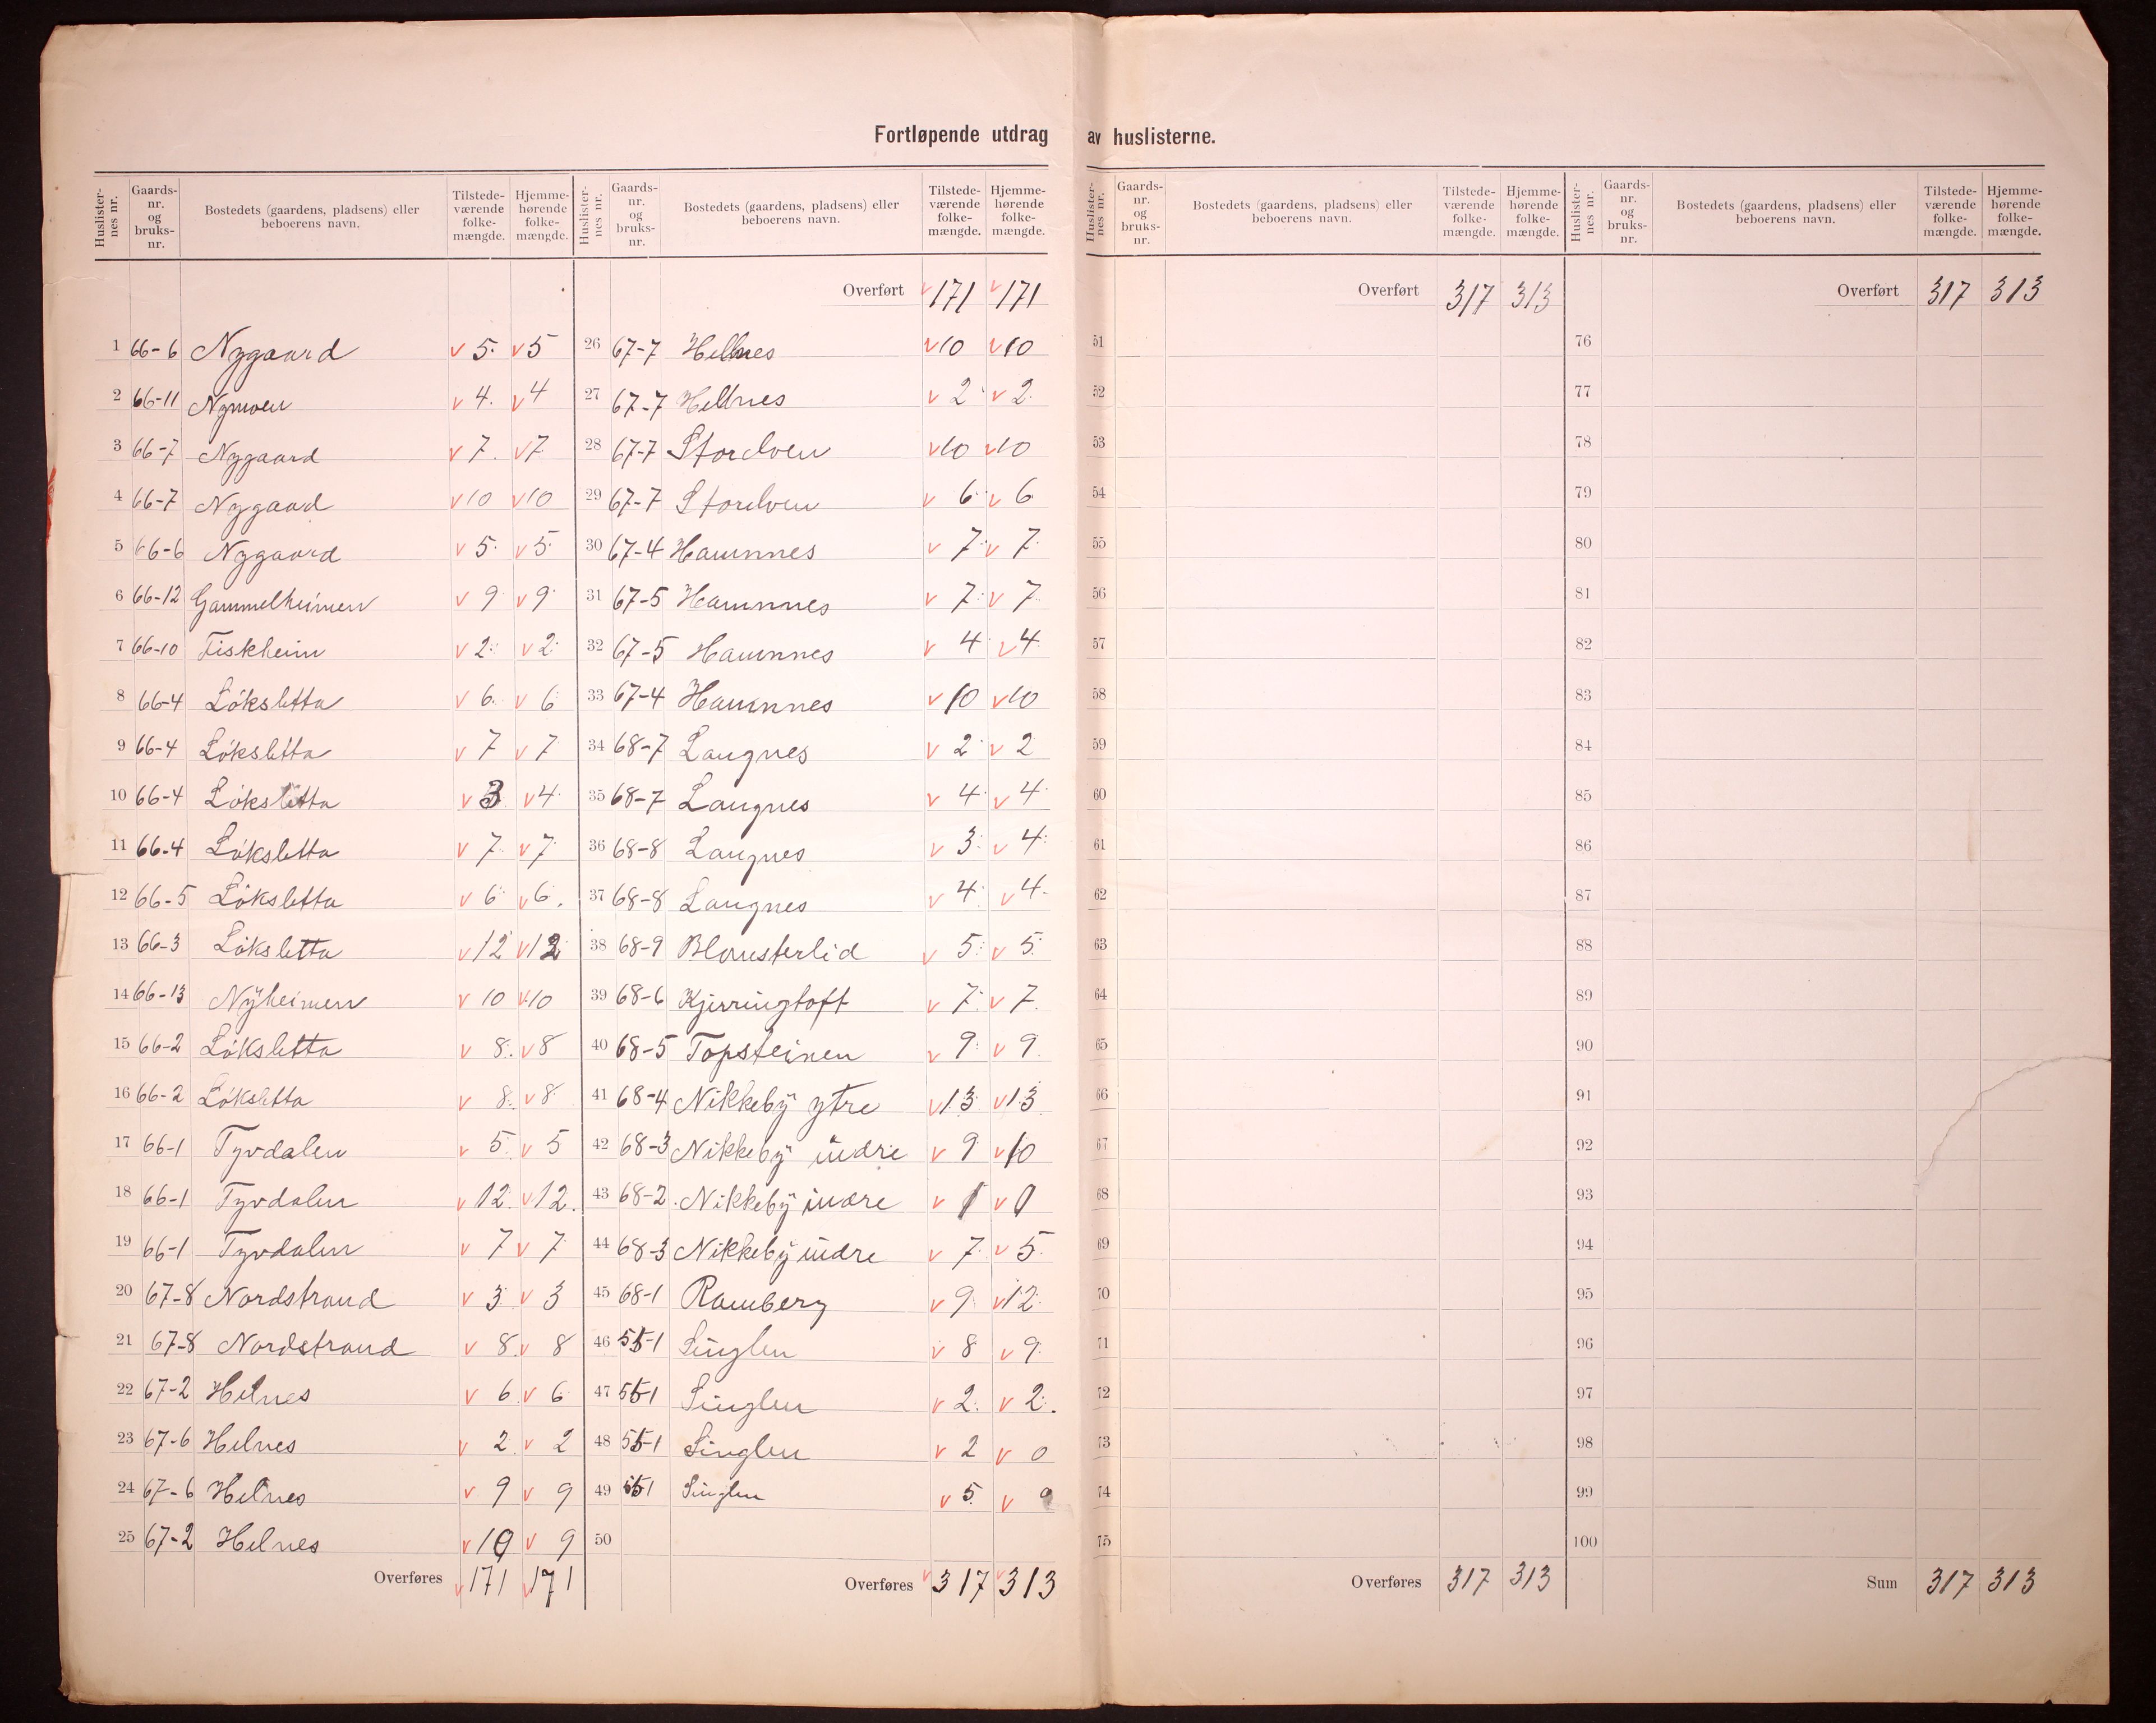 Fortløpende utdrag av huslisterne.
Huslisternes nr. | Gaards-nr. og bruks-nr. | Bostedets (gaardens, pladsens) eller beboerens navn. | Tilstede-værende folke-mængde. | Hjemme-hørende folke-mængde.
1 66-6 Nygaard v 5 v 5
2 66-11 Nymoen v 4 v 4
3 66-7 Nygaard v 7 v 7
4 66-7 Nygaard v 10 v 10
5 66-6 Nygaard v 5 v 5
6 66-12 Gammelheimen v 9 v 9
7 66-10 Fiskheim v 2 v 2
8 66-4 Löksletta v 6 v 6
9 66-4 Löksletta v 7 v 7
10 66-4 Löksletta v 3 v 4
11 66-4 Löksletta v 7 v 7
12 66-5 Löksletta v 6 v 6
13 66-3 Löksletta v 12 v 12
14 66-13 Nÿheimen v 10 v 10
15 66-2 Löksletta v 8 v 8
16 66-2 Löksletta v 8 v 8
17 66-1 Tyvdalen v 5 v 5
18 66-1 Tyvdalen v 12 v 12
19 66-1 Tyvdalen v 7 v 7
20 67-8 Nordstrand v 3 v 3
21 67-8 Nordstrand v 8 v 8
22 67-2 Helnes v 6 v 6
23 67-6 Helnes v 2 v 2
24 67-6 Helnes v 9 v 9
25 67-2 Helnes v 10 v 9
Overføres v 171 v 171
Huslisternes nr. | Gaards-nr. og bruks-nr. | Bostedets (gaardens, pladsens) eller beboerens navn. | Tilstede-værende folke-mængde. | Hjemme-hørende folke-mængde.
Overført v 171 v 171
26 67-7 Helnes v 10 v 10
27 67-7 Helnes v 2 v 2
28 67-7 Storelven v 10 v 10
29 67-7 Storelven v 6 v 6
30 67-4 Hamnnes v 7 v 7
31 67-5 Hamnnes v 7 v 7
32 67-5 Hamnnes v 4 v 4
33 67-4 Hamnnes v 10 v 10
34 68-7 Langnes v 2 v 2
35 68-7 Langnes v 4 v 4
36 68-8 Langnes v 3 v 4
37 68-8 Langnes v 4 v 4
38 68-9 Blomsterlid v 5 v 5
39 68-6 Kjerringtoft v 7 v 7
40 68-5 Topsteinen v 9 v 9
41 68-4 Nikkebÿ ytre v 13 v 13
42 68-3 Nikkebÿ indre v 9 v 10
43 68-2 Nikkebÿ indre v 1 v
44 68-3 Nikkebÿ indre v 7 v 5
45 68-1 Ramberg v 9 v 12
46 55-1 Singlen v 8 v 9
47 55-1 Singlen v 2 v 2
48 55-1 Singlen v 2 v 0
49 55-1 Singlen v 5 v
50
Overføres v 317 v 313
Huslisternes nr. | Gaards-nr. og bruks-nr. | Bostedets (gaardens, pladsens) eller beboerens navn. | Tilstede-værende folke-mængde. | Hjemme-hørende folke-mængde.
Overført 317 313
51
52
53
54
55
56
57
58
59
60
61
62
63
64
65
66
67
68
69
70
71
72
73
74
75
Overføres 317 313
Huslisternes nr. | Gaards-nr. og bruks-nr. | Bostedets (gaardens, pladsens) eller beboerens navn. | Tilstede-værende folke-mængde. | Hjemme-hørende folke-mængde.
Overført 317 313
76
77
78
79
80
81
82
83
84
85
86
87
88
89
90
91
92
93
94
95
96
97
98
99
100
Sum 317 313